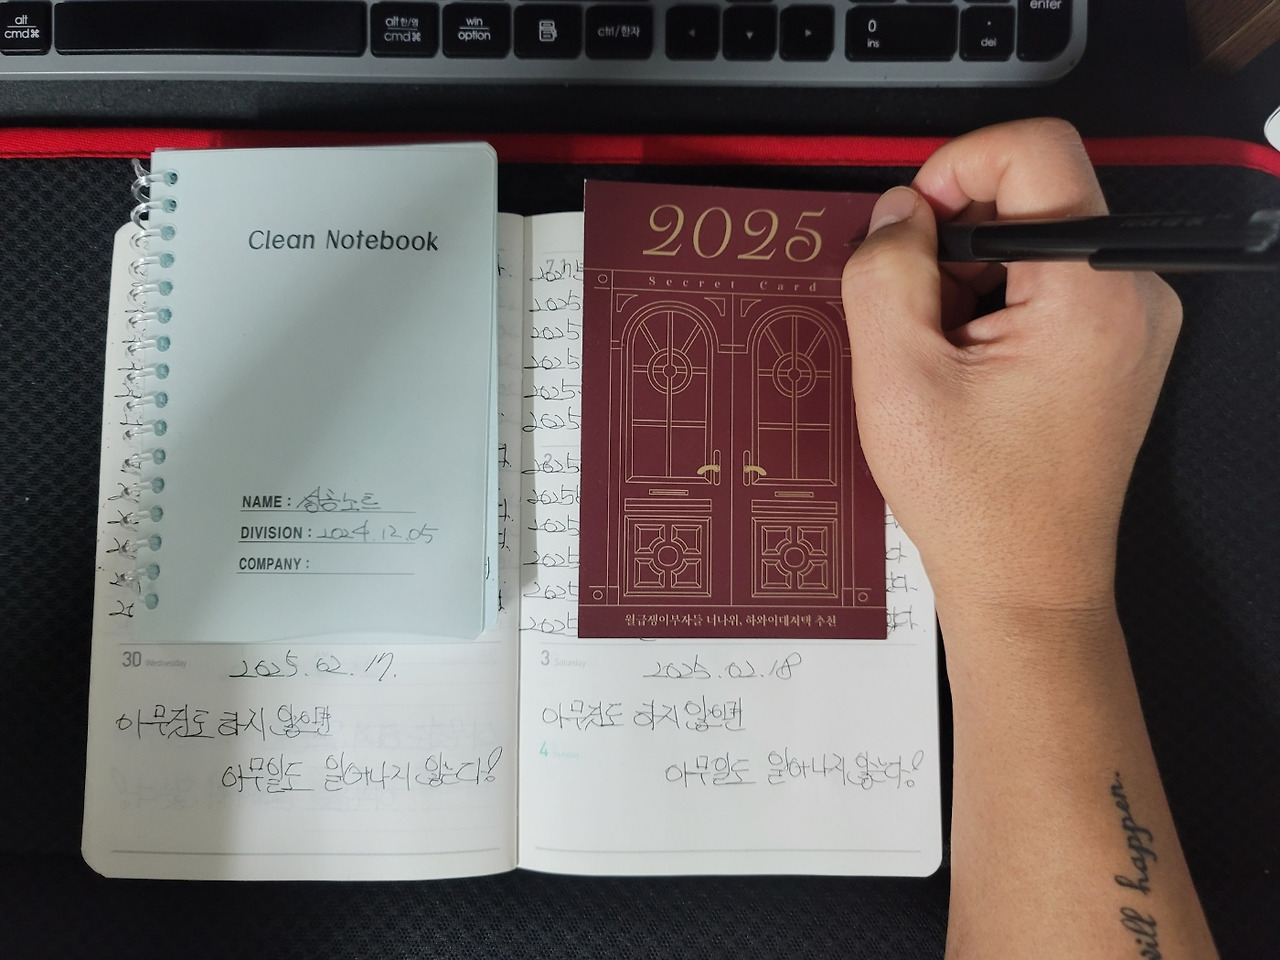 alt
cmd⌘
alt 한/영
cmd⌘
win
option
ctrl/한자
0
ins
.
del
enter
Clean Notebook
NAME : 성공노트
DIVISION : 2024.12.05
COMPANY :
2025
Secret Card
월급쟁이부자들 너나위, 하와이대저택 추천
2025
2025
2025
2025
2025
2025
2025
2025
2025
2025
2025
30 Wednesday
2025.02.17.
아무것도 하지 않으면
아무일도 일어나지 않는다!
3 Saturday
2025.02.18
아무것도 하지 않으면
4 Sunday
아무일도 일어나지 않는다!
will happen.